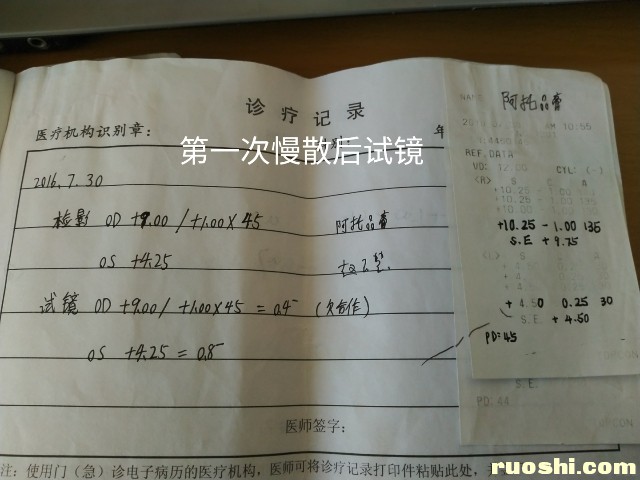 诊疗记录
医疗机构识别章：
年
第一次慢散后试镜
2016.7.30
检影 OD +9.00 / +1.00×45 阿托品膏
OS +4.25
试镜 OD +9.00 / +1.00×45 = 0.4- (欠合作)
OS +4.25 = 0.8-
医师签字：
注：使用门（急）诊电子病历的医疗机构，医师可将诊疗记录打印件粘贴此处，
NAME 阿托品膏
AM 10:55
REF. DATA
VD: 12.00 CYL: (-)
<R> S C A
+10.25 - 1.00 135
S.E + 9.75
+ 4.50 0.25 30
S.E. + 4.50
PD:45
S.E.
PD:44
ruoshi.com